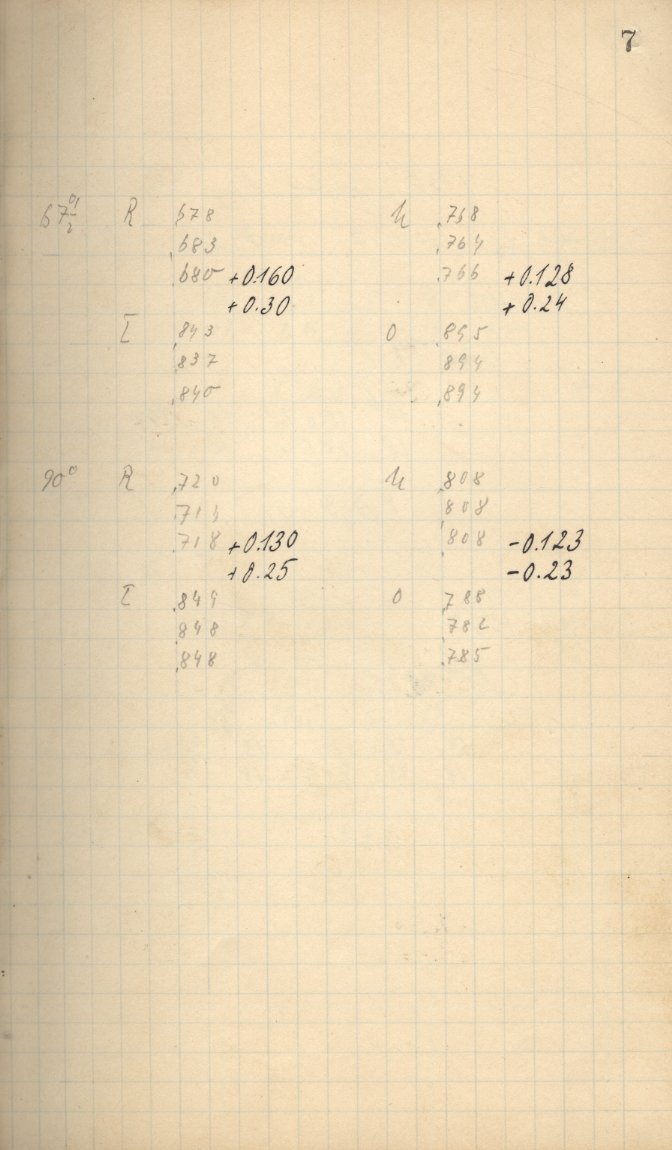 7
67½° R .678 U .768
.683 .764
.680 +0.160 .766 +0.128
+0.30 +0.24
I .843 O .895
.837 .894
.840 .894
90° R .720 U .808
.715 .808
.718 +0.130 .808 -0.123
+0.25 -0.23
I .849 O .788
.848 .782
.848 .785